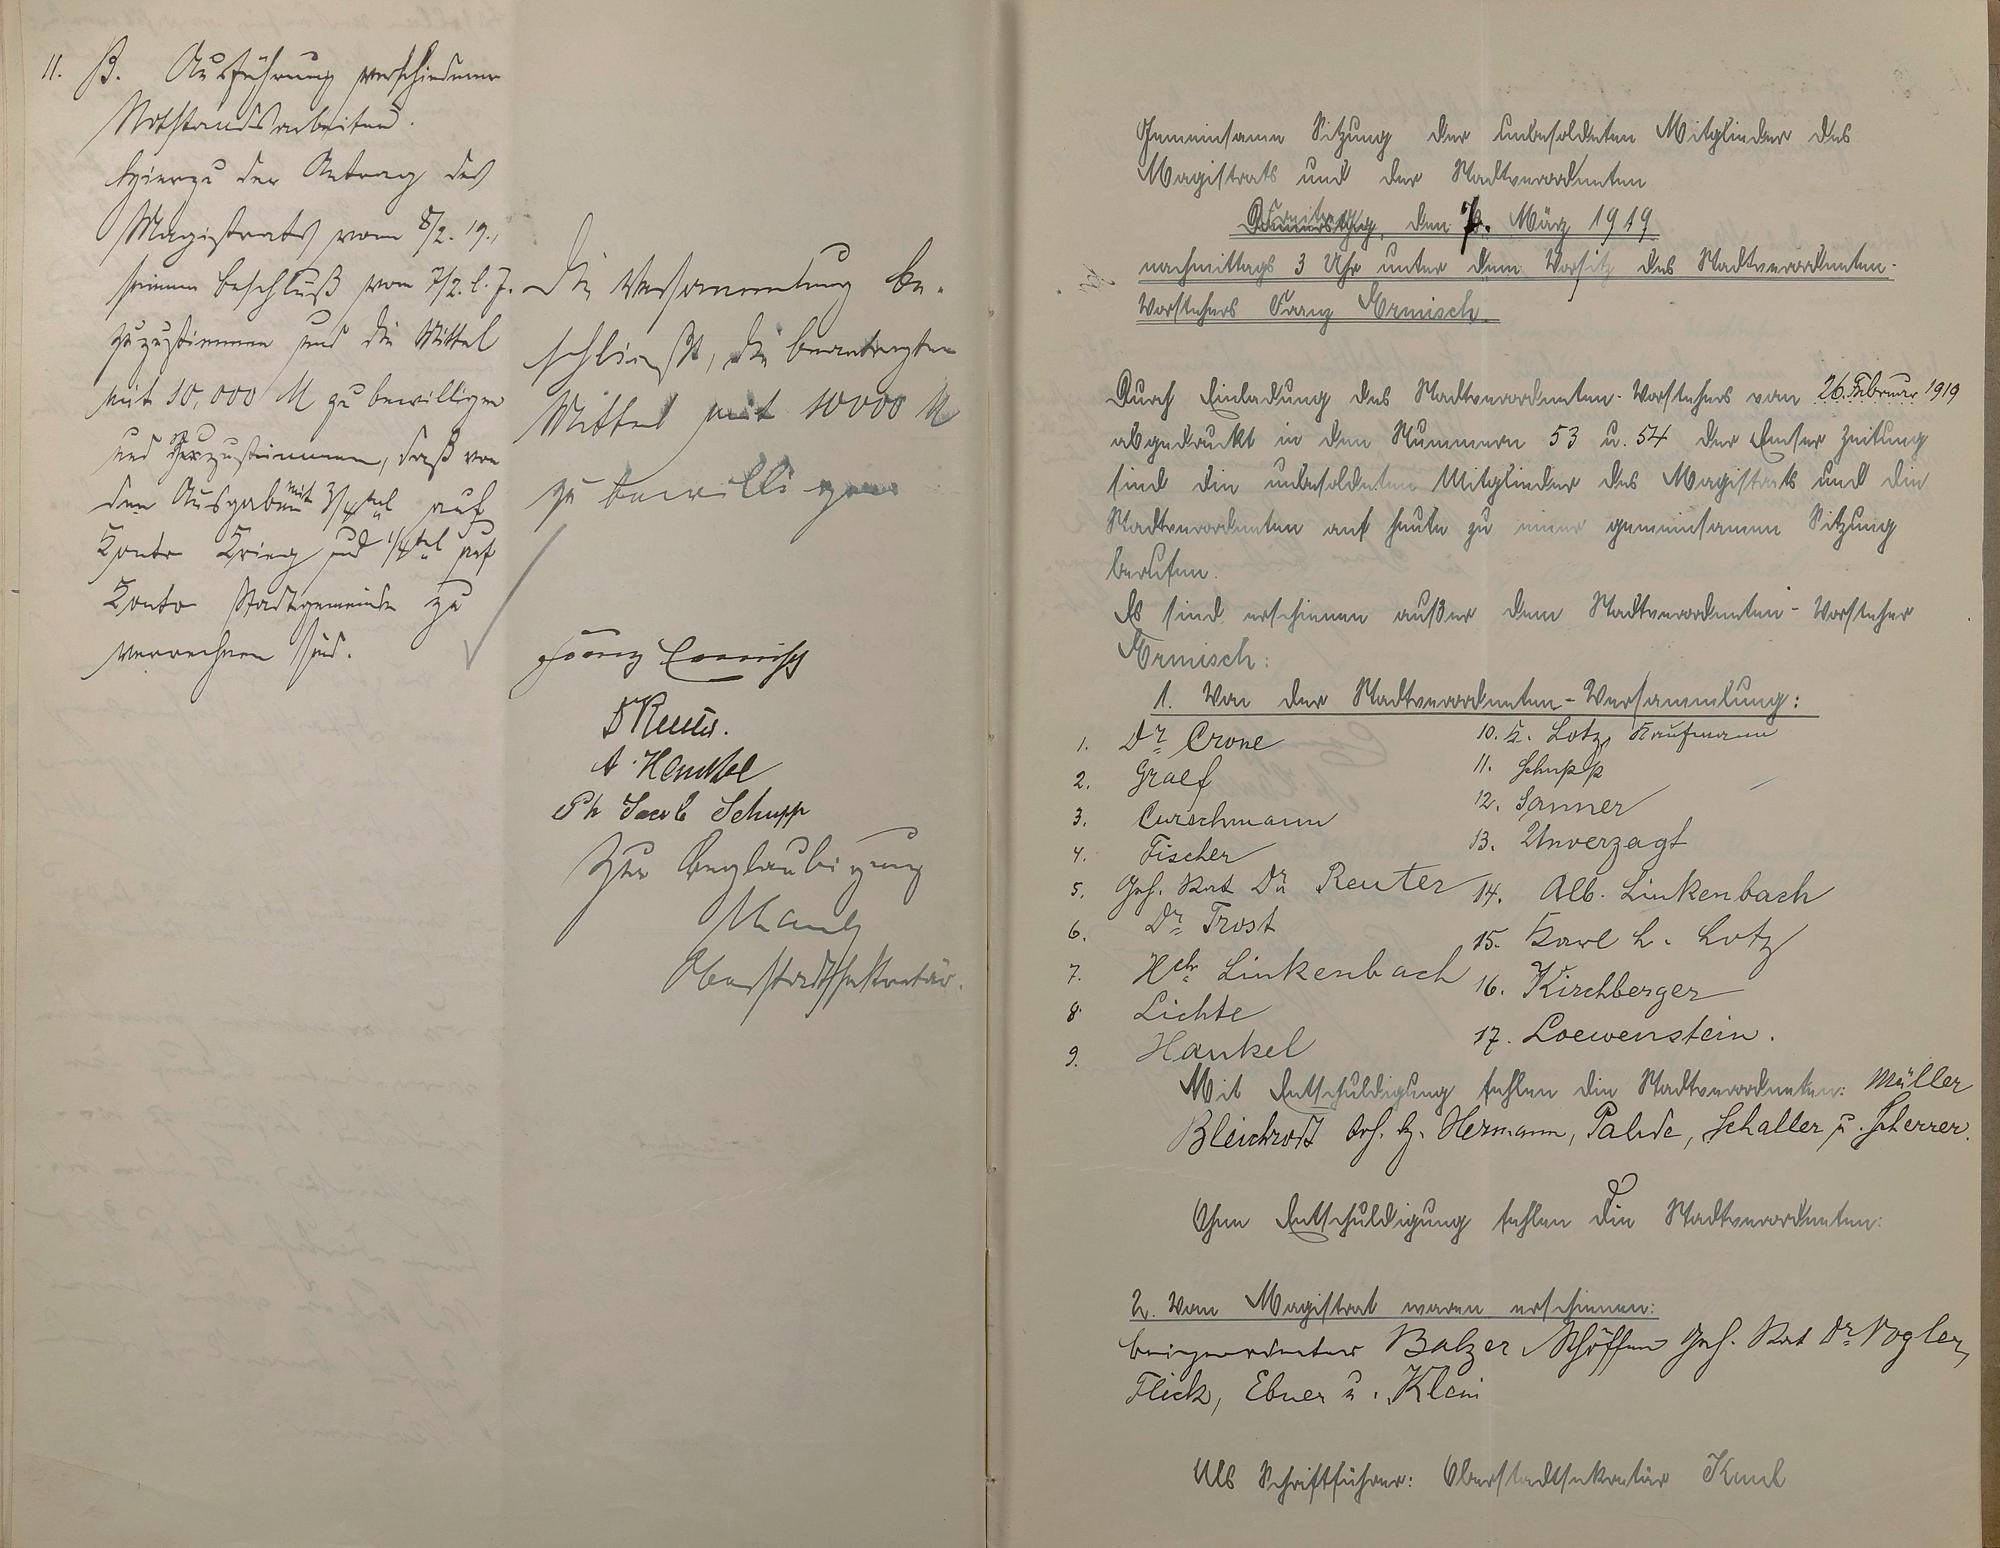 11. B. Ausführung verschiedener
Notstandsarbeiten.
Hierzu der Antrag des
Magistrats vom 8/2. 19.,
seinem Beschluß vom 7/2. l. J.
zuzustimmen und die Mittel
mit 10,000 M zu bewilligen
und zuzustimmen, daß von
den Ausgaben mit 3/4tel auf
Konto Krieg und 1/4tel auf
Konto Stadtgemeinde zu
verrechnen sind.
Die Versammlung be-
schließt, die beantragten
Mittel mit 10000 M
zu bewilligen
Franz Ermisch
Dr Reuter.
A. Hankel
Ph Jacob Schupp
Zur Beglaubigung
Kaul
Oberstadtsekretär.
Gemeinsame Sitzung der unbesoldeten Mitglieder des
Magistrats und der Stadtverordneten
Freitag, den 7. März 1919
nachmittags 3 Uhr unter dem Vorsitz des Stadtverordneten-
Vorstehers Franz Ermisch.
Durch Einladung des Stadtverordneten-Vorstehers vom 26. Februar 1919
abgedruckt in den Nummern 53 u. 54 der Emser Zeitung
sind die unbesoldeten Mitglieder des Magistrats und die
Stadtverordneten auf heute zu einer gemeinsamen Sitzung
berufen.
Es sind erschienen außer dem Stadtverordneten-Vorsteher
Ermisch:
1. Von der Stadtverordneten-Versammlung:
1. Dr. Crone
2. Graef
3. Curschmann
4. Fischer
5. Geh. Rat Dr. Reuter
6. Dr. Trost
7. Hch. Linkenbach
8. Lichte
9. Hankel
10. K. Lotz, Kaufmann
11. Schupp
12. Sanner
13. Unverzagt
14. Alb. Linkenbach
15. Karl H. Lotz
16. Kirchberger
17. Loewenstein.
Mit Entschuldigung fehlen die Stadtverordneten: Müller
Bleichrodt Hermann, Schaller u. Scherrer.
Ohne Entschuldigung fehlen die Stadtverordneten:
2. Vom Magistrat waren erschienen:
Beigeordneter Balzer Schöffen Geh. Rat Dr. Vogler,
Flick, Ebner u. Klein
Als Schriftführer: Oberstadtsekretär Kaul